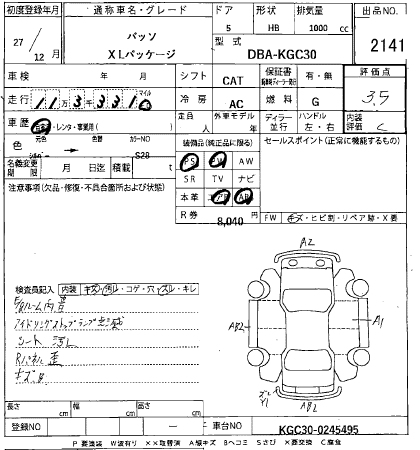 初度登録年月 通称車名・グレード ドア 形状 排気量 出品NO.
27 / 12 月 パッソ 5 HB 1000 cc
XLパッケージ 型式 DBA-KGC30 2141
車検 年 月 シフト CAT 保証書 有・無 評価点
走行 マイル 冷房 AC 燃料 G 3.5
車歴 自家・レンタ・事業用( ) 定員 外車モデル年 ディーラー 並行 ハンドル 左・右 内装評価 C
色 元色 色替 カラーNO S28 装備品(純正品に限る) セールスポイント(正常に機能するもの)
名義変更期限 月 日迄 積載 PS PW AW
SR TV ナビ
注意事項(欠品・修復・不具合箇所および状態) 本革 エアB AB
R券 8,040 FW キズ・ヒビ割・リペア跡・X要
A2
検査員記入 内装 キズ・汚レ・コゲ・穴・スレ・キレ
E/gルーム内
アイドリングストップランプ点滅
シート 汚レ
Rパネル 歪
キズ
AB2 A1
AB2
長さ cm 幅 cm 高さ cm
登録NO 車台NO KGC30-0245495
P要塗装 W波有り XX取替済 A線キズ Bヘコミ Sさび X要交換 C腐食